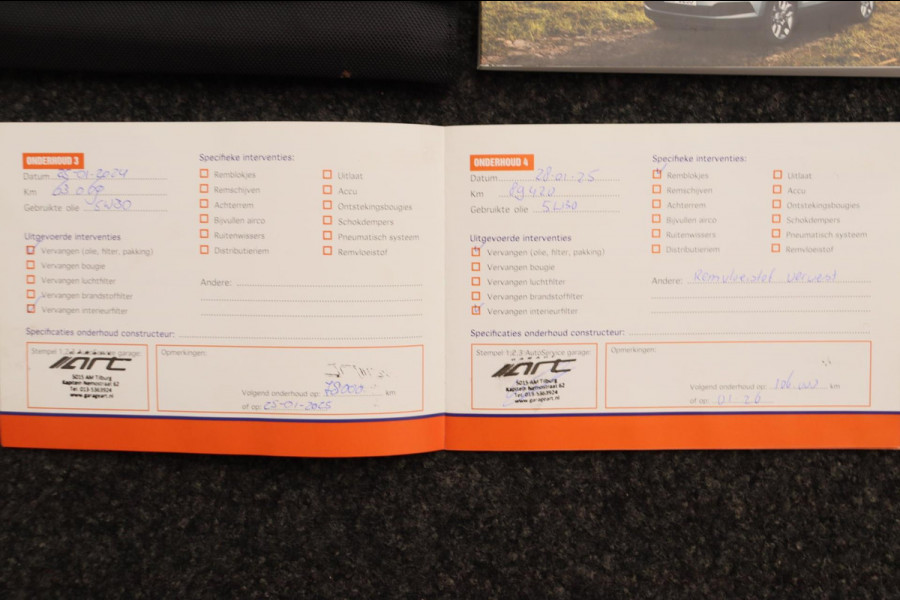 ONDERHOUD 3
Datum 25-01-2024
Km 63 069
Gebruikte olie 5W30
Uitgevoerde interventies
Vervangen (olie, filter, pakking)
Vervangen bougie
Vervangen luchtfilter
Vervangen brandstoffilter
Vervangen interieurfilter
Specifieke interventies:
Remblokjes
Remschijven
Achterrem
Bijvullen airco
Ruitenwissers
Distributieriem
Uitlaat
Accu
Ontstekingsbougies
Schokdempers
Pneumatisch systeem
Remvloeistof
Andere:
Specificaties onderhoud constructeur:
Stempel 1,2,3 AutoService garage:
art
5015 AM Tilburg
Kapitein Nemostraat 62
Tel. 013-5363924
www.garageart.nl
Opmerkingen:
Volgend onderhoud op: 78000 km
of op: 25-01-2025
ONDERHOUD 4
Datum 28-01-25
Km 89420
Gebruikte olie 5W30
Uitgevoerde interventies
Vervangen (olie, filter, pakking)
Vervangen bougie
Vervangen luchtfilter
Vervangen brandstoffilter
Vervangen interieurfilter
Specifieke interventies:
Remblokjes
Remschijven
Achterrem
Bijvullen airco
Ruitenwissers
Distributieriem
Uitlaat
Accu
Ontstekingsbougies
Schokdempers
Pneumatisch systeem
Remvloeistof
Andere: Remvloeistof ververst
Specificaties onderhoud constructeur:
Stempel 1,2,3 AutoService garage:
GARAGE
art
5015 AM Tilburg
Kapitein Nemostraat 62
Tel. 013-5363924
www.garageart.nl
Opmerkingen:
Volgend onderhoud op: 106.000 km
of op: 01 26